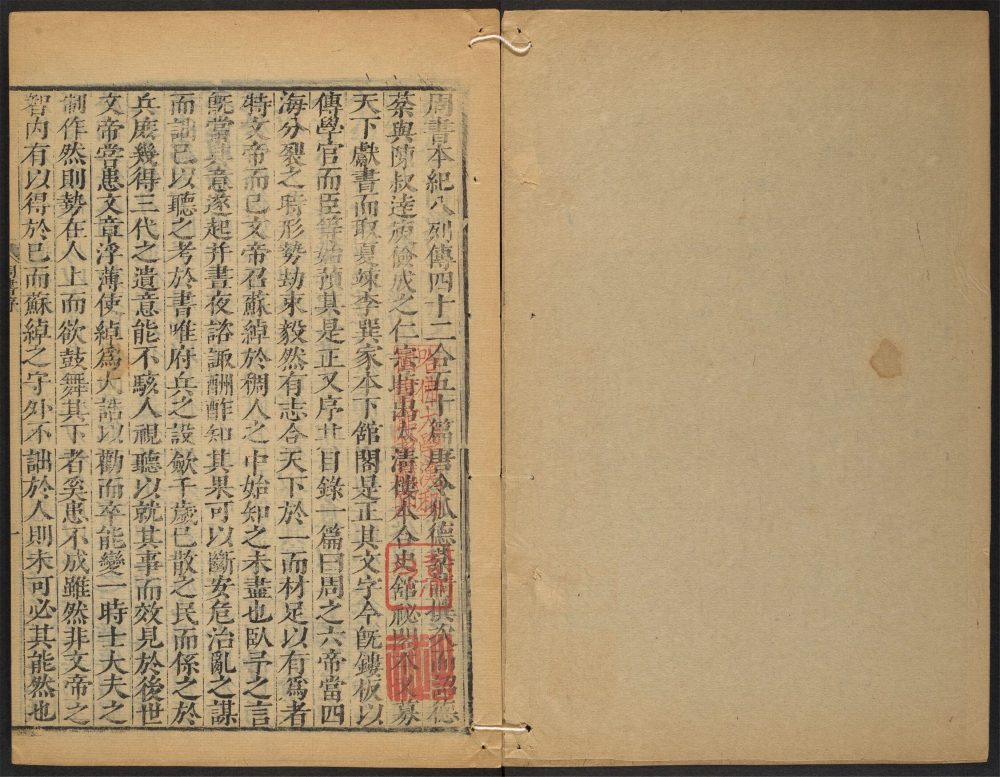 周書本紀八列傳四十二合五十篇唐令狐德棻請撰次而詔德
棻與陳叔達庾儉成之仁宗時出太清樓本合史館祕閣本又募
天下獻書而取夏竦李巽家本下館閣是正其文字今旣鏤板以
傳學官而臣等始預其是正又序其目錄一篇曰周之六帝當四
海分裂之時形勢劫束毅然有志合天下於一而材足以有爲者
特文帝而已文帝召蘇綽於稠人之中始知之未盡也臥予之言
旣當其意遂起并晝夜諮諏酬酢知其果可以斷安危治亂之謀
而詘己以聽之考於書唯府兵之設斂千歲已散之民而係之於
兵庶幾得三代之遺意能不駭人視聽以就其事而效見於後世
文帝嘗患文章浮薄使綽爲大誥以勸而卒能變一時士大夫之
制作然則勢在人上而欲鼓舞其下者奚患不成雖然非文帝之
智內有以得於己而蘇綽之守外不詘於人則未可必其能然也